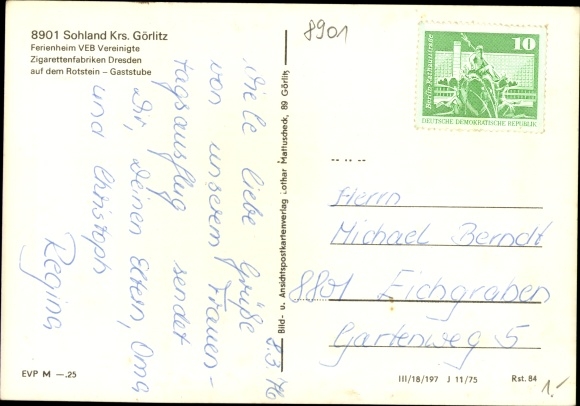 8901 Sohland Krs. Görlitz
Ferienheim VEB Vereinigte
Zigarettenfabriken Dresden
auf dem Rotstein – Gaststube
8901
Berlin-Rathausstraße
10
DEUTSCHE DEMOKRATISCHE REPUBLIK
8.3.76
Viele liebe Grüße
von unserem Frauen-
tagsausflug sendet
Dir, Deinen Eltern, Oma
und Christoph
Regina
Bild- u. Ansichtspostkartenverlag Lothar Mattuscheck, 89 Görlitz
Herrn
Michael Berndt
8801 Eichgraben
Gartenweg 5
EVP M —.25
III/18/197 J 11/75
Rst. 84
1.-